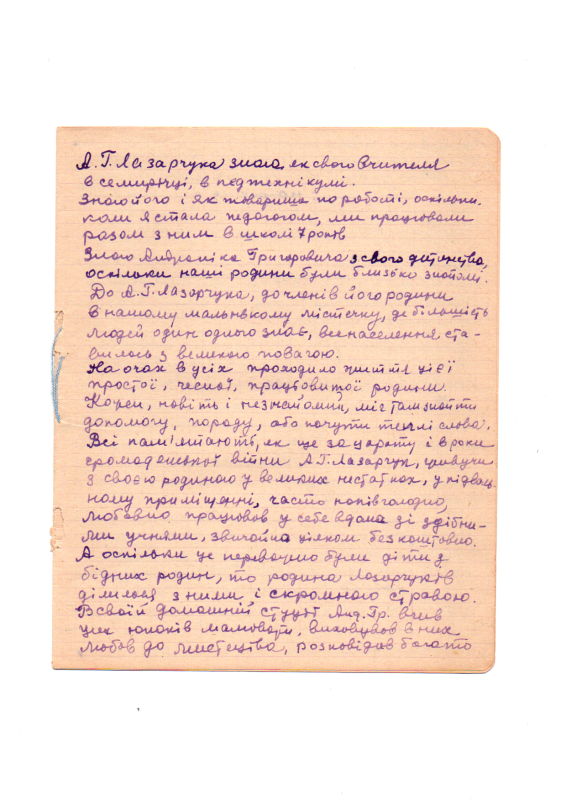 А.Г.Лазарчука знаю, як свого вчителя
в семирічці, в педтехнікумі.
Знаю його і як товариша по роботі, оскільки,
коли я стала педагогом, ми працювали
разом з ним в школі 7 років
Знаю Андроніка Григоровича з свого дитинства,
оскільки наші родини були близько знайомі.
До А.Г.Лазарчука, до членів його родини
в нашому маленькому містечку, де більшість
людей один одного знав, все населення ста-
вилось з великою повагою.
На очах в усіх проходило життя цієї
простої, чесної, працьовитої родини.
Кожен, навіть і незнайомий, міг там знайти
допомогу, пораду, або почути теплі слова.
Всі пам'ятають, як ще за царату і в роки
громадянської війни А.Г.Лазарчук, живучи
з своєю родиною у великих нестатках, у підваль-
ному приміщенні, часто напівголодно,
любовно працював у себе вдома зі здібни-
ми учнями, звичайно цілком безкоштовно.
А оскільки це переважно були діти з
бідних родин, то родина Лазарчуків
ділилась з ними і скромною стравою.
В своїй домашній студії Анд. Гр. вчив
цих юнаків малювати, виховував в них
любов до мистецтва, розповідав багато